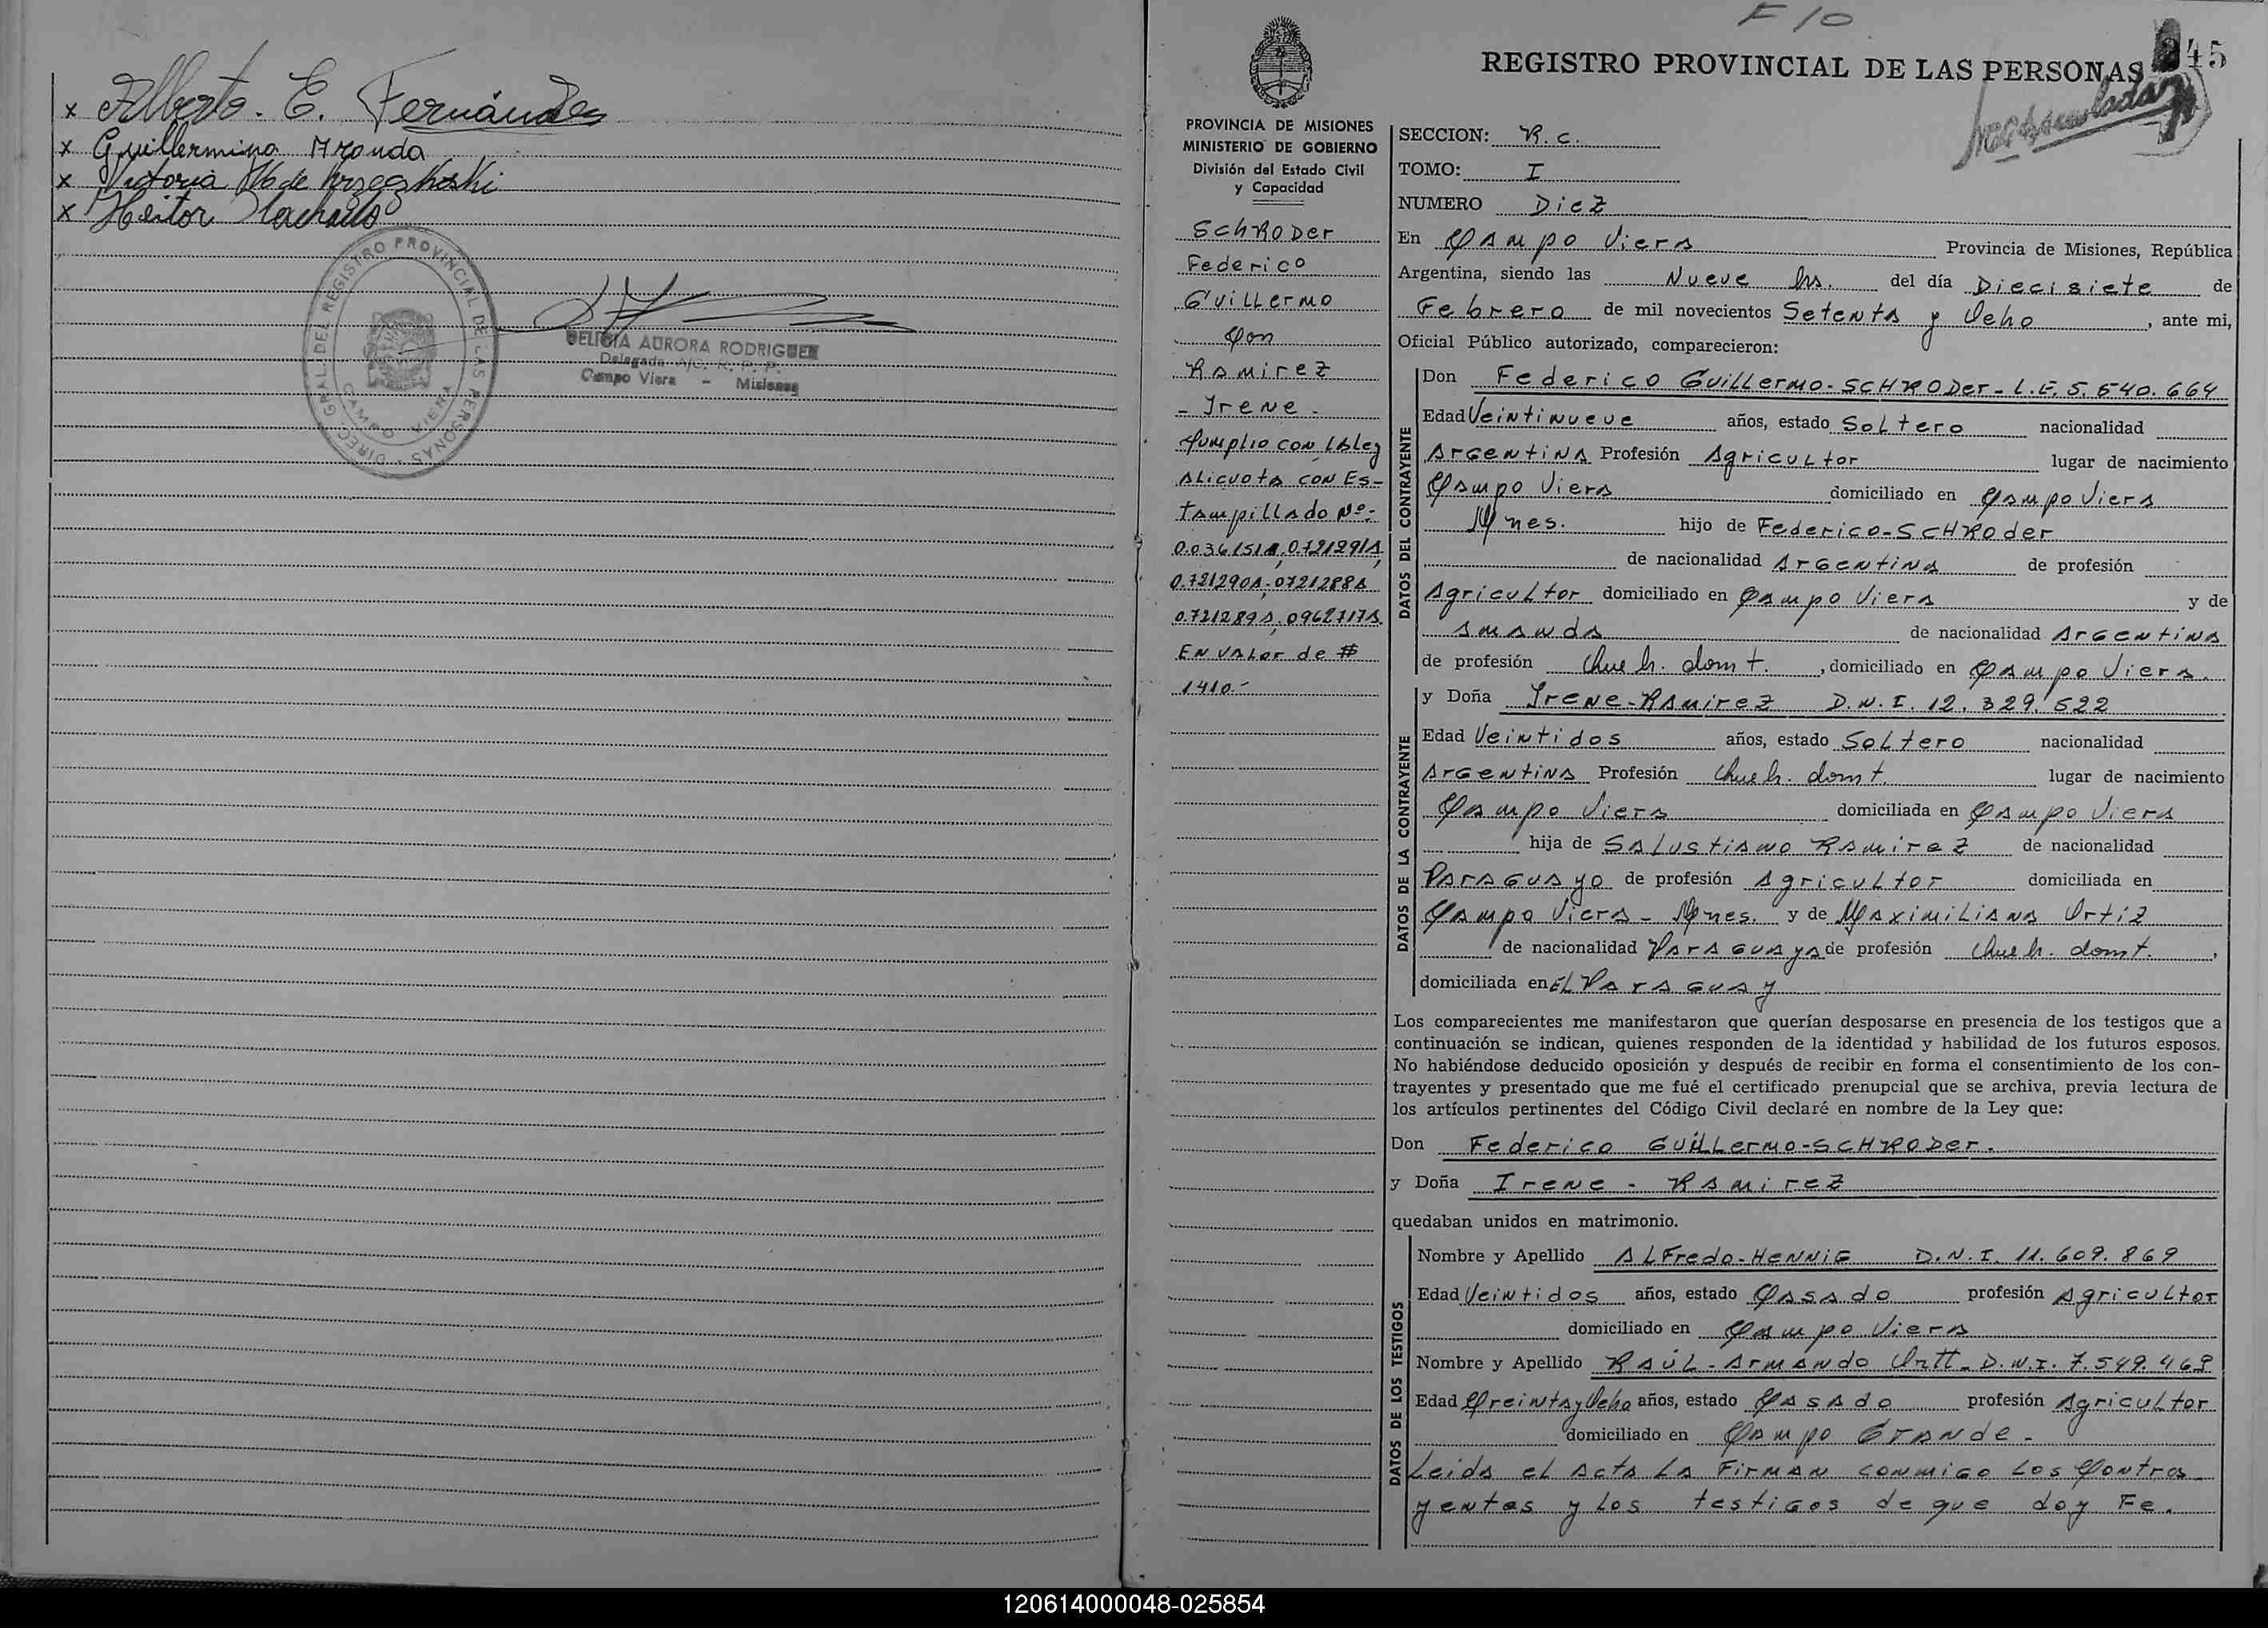 x Alberto. E. Fernández
x Guillermina Aranda
x Victoria de
x Heitor Machado
DIREC. GRAL. DEL REGISTRO PROVINCIAL DE LAS PERSONAS
CAMPO VIERA
DELICIA AURORA RODRIGUEZ
Delegada A/C. R. P. P.
Campo Viera - Misiones
F 10
REGISTRO PROVINCIAL DE LAS PERSONAS
45
PROVINCIA DE MISIONES
MINISTERIO DE GOBIERNO
División del Estado Civil
y Capacidad
SCHRODER
Federico
Guillermo
Con
Ramirez
- Irene -
Cumplio con la Ley
Alicuota con Es-
tampillado Nº:
0.7212904; 0721288A
En valor de $
1410.-
SECCION: R.C.
TOMO: I
NUMERO Diez
En Campo Viera Provincia de Misiones, República
Argentina, siendo las Nueve hs. del día Diecisiete de
Febrero de mil novecientos Setenta y Ocho, ante mi,
Oficial Público autorizado, comparecieron:
DATOS DEL CONTRAYENTE
Don Federico Guillermo-SCHRODER-L.E. 5.540.664
Edad Veintinueve años, estado Soltero nacionalidad
Argentina Profesión Agricultor lugar de nacimiento
Campo Viera domiciliado en Campo Viera
Mnes. hijo de Federico-SCHRODER
de nacionalidad Argentina de profesión
Agricultor domiciliado en Campo Viera y de
Amanda de nacionalidad Argentina
de profesión Queh. domt., domiciliado en Campo Viera.
DATOS DE LA CONTRAYENTE
y Doña Irene-Ramirez D.N.I. 12.329.522
Edad Veintidos años, estado Soltero nacionalidad
Argentina Profesión Queh. domt. lugar de nacimiento
Campo Viera domiciliada en Campo Viera
hija de Salustiano Ramirez de nacionalidad
Paraguayo de profesión Agricultor domiciliada en
Campo Viera - Mnes. y de Maximiliana Ortiz
de nacionalidad Paraguaya de profesión Queh. domt.,
domiciliada en El Paraguay
Los comparecientes me manifestaron que querían desposarse en presencia de los testigos que a
continuación se indican, quienes responden de la identidad y habilidad de los futuros esposos.
No habiéndose deducido oposición y después de recibir en forma el consentimiento de los con-
trayentes y presentado que me fué el certificado prenupcial que se archiva, previa lectura de
los artículos pertinentes del Código Civil declaré en nombre de la Ley que:
Don Federico Guillermo-SCHRODER.
y Doña Irene - Ramirez
quedaban unidos en matrimonio.
DATOS DE LOS TESTIGOS
Nombre y Apellido Alfredo-Hennig D.N.I. 11.609.869
Edad Veintidos años, estado Casado profesión Agricultor
domiciliado en Campo Viera
Nombre y Apellido Raúl-Armando Ortt- D.N.I. 7.549.469
Edad Treinta y Ocho años, estado Casado profesión Agricultor
domiciliado en Campo Grande-
Leida el Acta La Firman conmigo Los Contra-
yentes y Los testigos de que doy Fe.
120614000048-025854